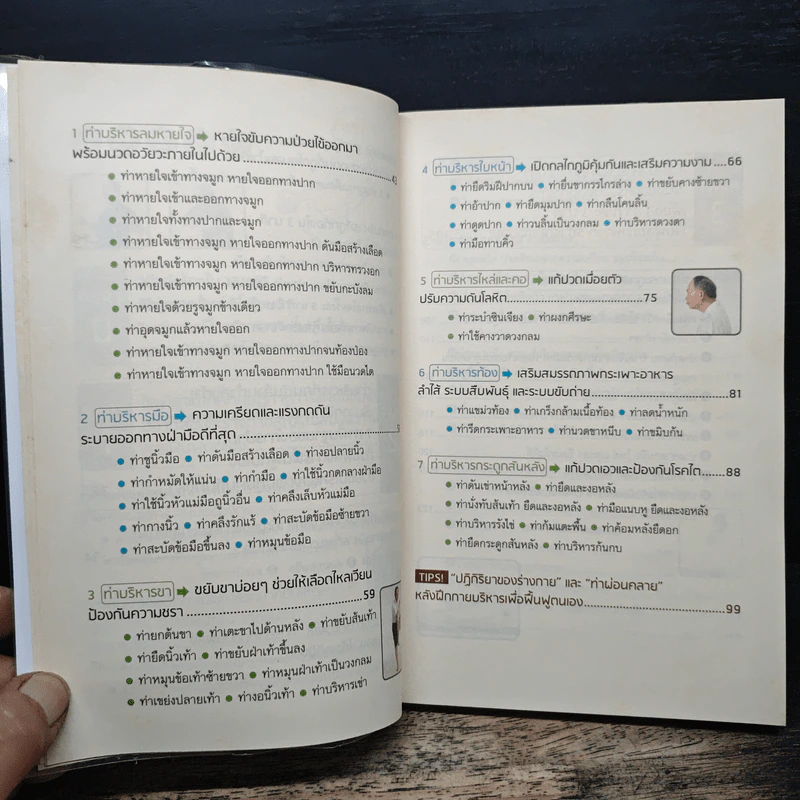 1 ท่าบริหารลมหายใจ ➡ หายใจขับความป่วยไข้ออกมา
พร้อมนวดอวัยวะภายในไปด้วย .......... 43
● ท่าหายใจเข้าทางจมูก หายใจออกทางปาก
● ท่าหายใจเข้าและออกทางจมูก
● ท่าหายใจทั้งทางปากและจมูก
● ท่าหายใจเข้าทางจมูก หายใจออกทางปาก ดันมือสร้างเลือด
● ท่าหายใจเข้าทางจมูก หายใจออกทางปาก บริหารทรวงอก
● ท่าหายใจเข้าทางจมูก หายใจออกทางปาก ขยับกะบังลม
● ท่าหายใจด้วยรูจมูกข้างเดียว
● ท่าอุดจมูกแล้วหายใจออก
● ท่าหายใจเข้าทางจมูก หายใจออกทางปากจนท้องป่อง
● ท่าหายใจเข้าทางจมูก หายใจออกทางปาก ใช้มือนวดไต
2 ท่าบริหารมือ ➡ ความเครียดและแรงกดดัน
ระบายออกทางฝ่ามือดีที่สุด ..........
● ท่าชูนิ้วมือ ● ท่าดันมือสร้างเลือด ● ท่างอปลายนิ้ว
● ท่ากำหมัดให้แน่น ● ท่ากำมือ ● ท่าใช้นิ้วกดกลางฝ่ามือ
● ท่าใช้นิ้วหัวแม่มือถูนิ้วอื่น ● ท่าคลึงเล็บหัวแม่มือ
● ท่ากางนิ้ว ● ท่าคลึงรักแร้ ● ท่าสะบัดข้อมือซ้ายขวา
● ท่าสะบัดข้อมือขึ้นลง ● ท่าหมุนข้อมือ
3 ท่าบริหารขา ➡ ขยับขาบ่อยๆ ช่วยให้เลือดไหลเวียน
ป้องกันความชรา .......... 59
● ท่ายกต้นขา ● ท่าเตะขาไปด้านหลัง ● ท่าขยับส้นเท้า
● ท่ายืดนิ้วเท้า ● ท่าขยับฝ่าเท้าขึ้นลง
● ท่าหมุนข้อเท้าซ้ายขวา ● ท่าหมุนฝ่าเท้าเป็นวงกลม
● ท่าเขย่งปลายเท้า ● ท่างอนิ้วเท้า ● ท่าบริหารเข่า
4 ท่าบริหารใบหน้า ➡ เปิดกลไกภูมิคุ้มกันและเสริมความงาม .... 66
● ท่ายืดริมฝีปากบน ● ท่ายื่นขากรรไกรล่าง ● ท่าขยับคางซ้ายขวา
● ท่าอ้าปาก ● ท่ายืดมุมปาก ● ท่ากลืนโคนลิ้น
● ท่าดูดปาก ● ท่าวนลิ้นเป็นวงกลม ● ท่าบริหารดวงตา
● ท่ามือทาบคิ้ว
5 ท่าบริหารไหล่และคอ ➡ แก้ปวดเมื่อยตัว
ปรับความดันโลหิต .......... 75
● ท่าระบำซินเจียง ● ท่าผงกศีรษะ
● ท่าใช้คางวาดวงกลม
6 ท่าบริหารท้อง ➡ เสริมสมรรถภาพกระเพาะอาหาร
ลำไส้ ระบบสืบพันธุ์ และระบบขับถ่าย .......... 81
● ท่าแขม่วท้อง ● ท่าเกร็งกล้ามเนื้อท้อง ● ท่าลดน้ำหนัก
● ท่ารีดกระเพาะอาหาร ● ท่านวดขาหนีบ ● ท่าขมิบก้น
7 ท่าบริหารกระดูกสันหลัง ➡ แก้ปวดเอวและป้องกันโรคไต .. 88
● ท่าดันเข่าหน้าหลัง ● ท่ายืดและงอหลัง
● ท่านั่งทับส้นเท้า ยืดและงอหลัง ● ท่ามือแนบหู ยืดและงอหลัง
● ท่าบริหารรังไข่ ● ท่าก้มแตะพื้น ● ท่าค้อมหลังยืดอก
● ท่ายืดกระดูกสันหลัง ● ท่าบริหารก้นกบ
TIPS! "ปฏิกิริยาของร่างกาย" และ "ท่าผ่อนคลาย"
หลังฝึกกายบริหารเพื่อฟื้นฟูตนเอง .......... 99